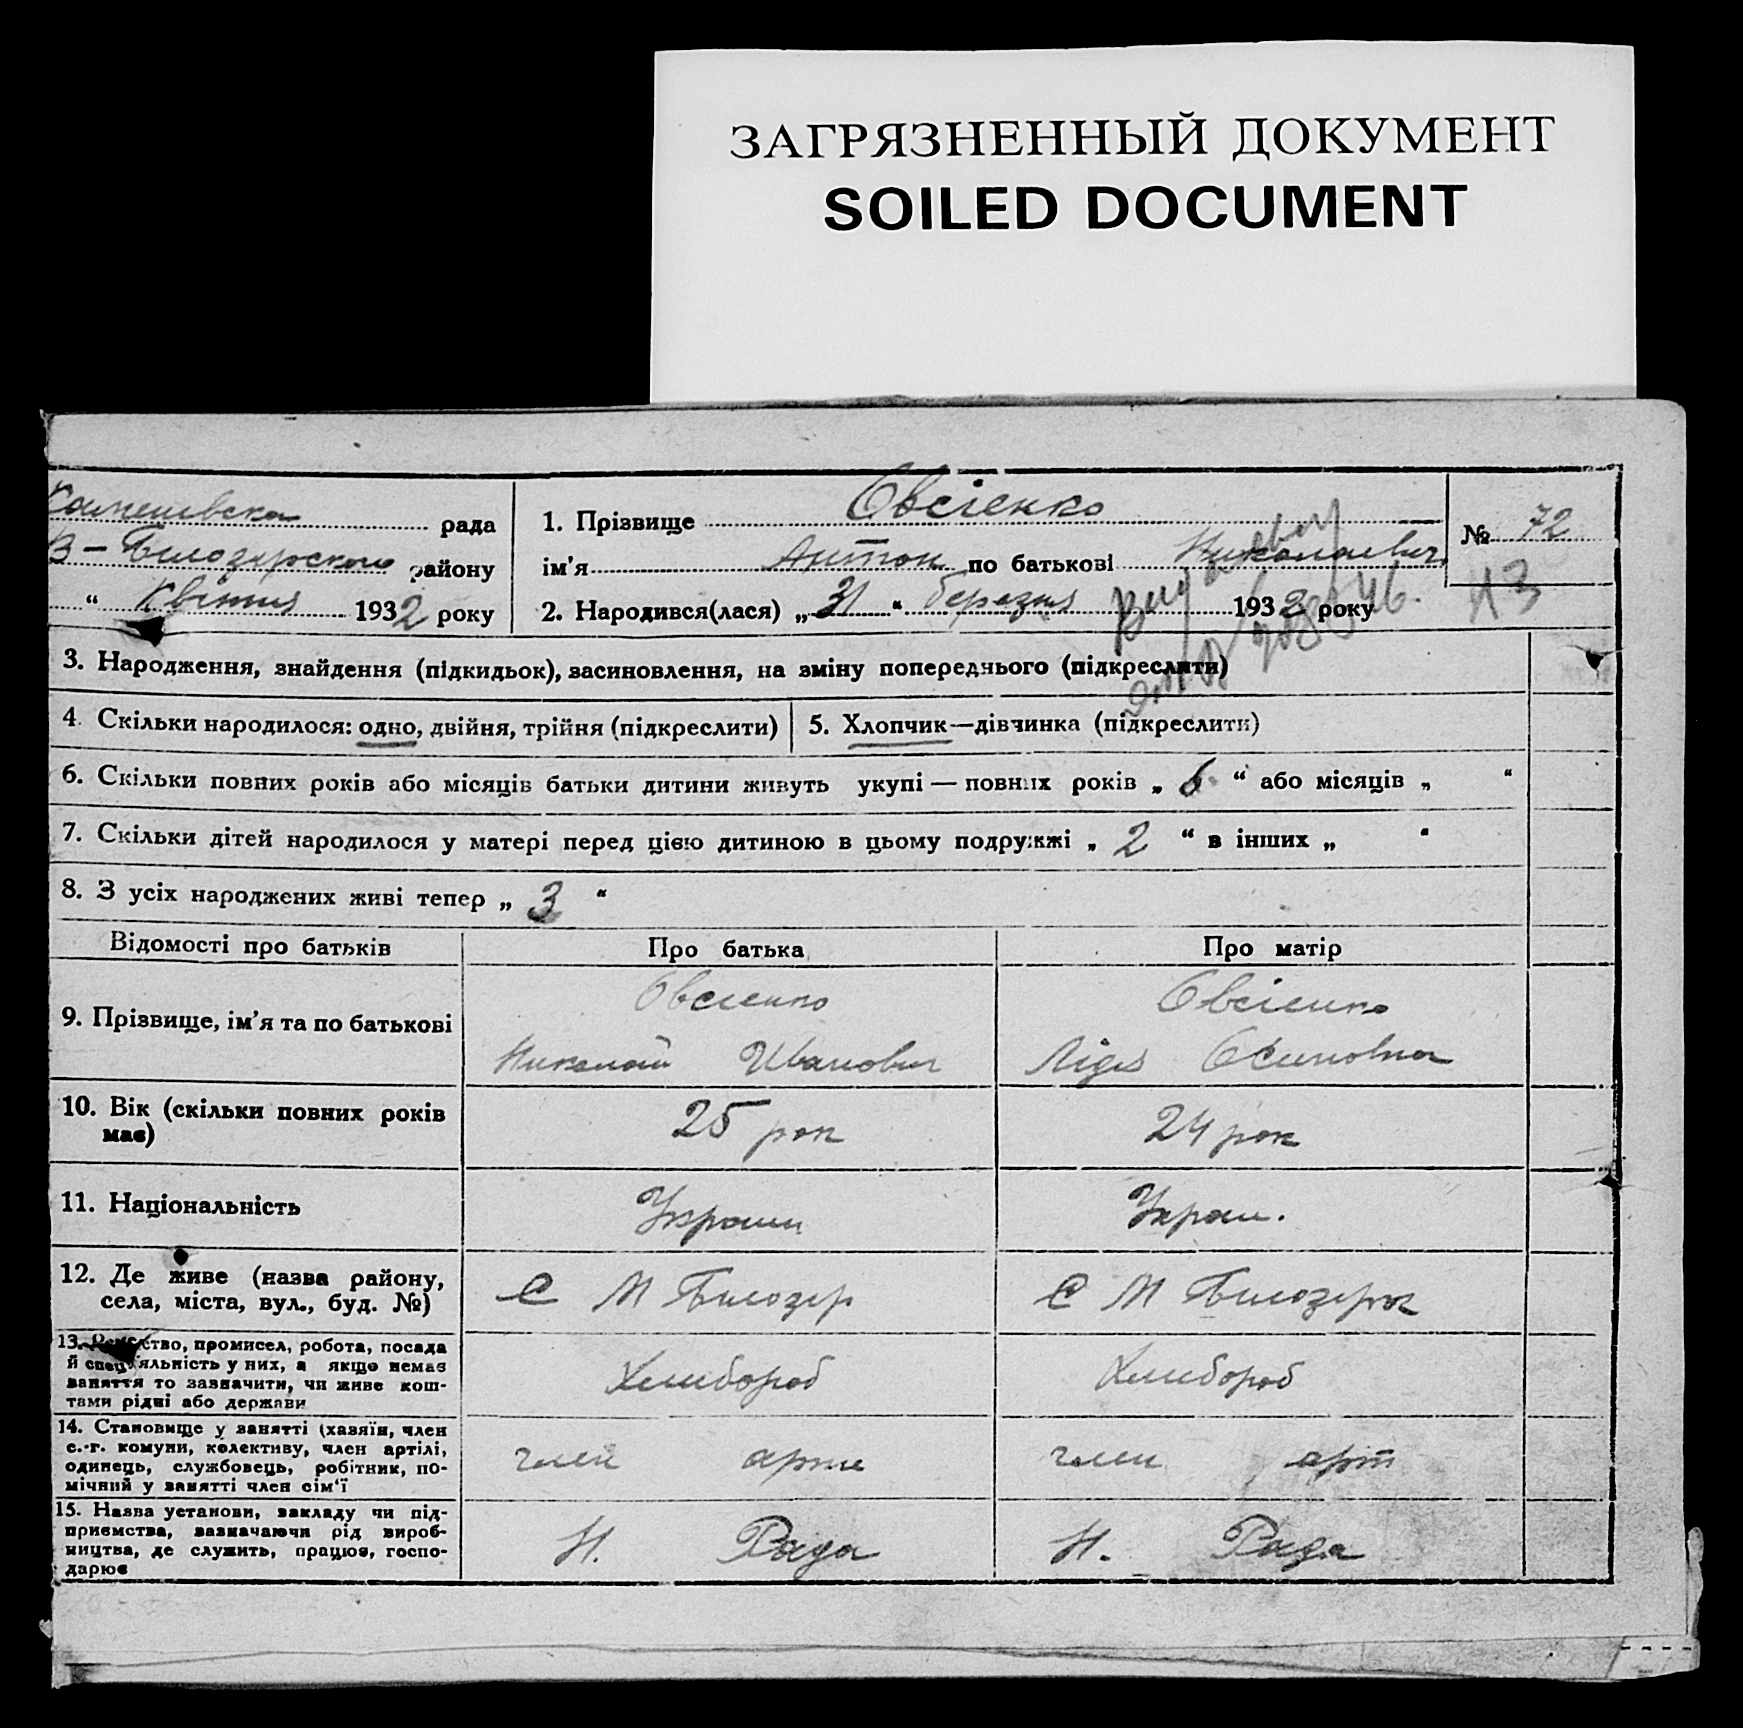 ЗАГРЯЗНЕННЫЙ ДОКУМЕНТ
SOILED DOCUMENT
рада
В - Билозерского району
“ Квітня 1932 року
1. Прізвище Овсієнко
ім’я Антон по батькові Николаевич
2. Народився(лася) „ 31 “ березня 1932 року
№ 72
43
3. Народження, знайдення (підкидьок), засиновлення, на зміну попереднього (підкреслити)
4. Скільки народилося: одно, двійня, трійня (підкреслити)
5. Хлопчик—дівчинка (підкреслити)
6. Скільки повних років або місяців батьки дитини живуть укупі — повних років „ 6 “ або місяців „ “
7. Скільки дітей народилося у матері перед цією дитиною в цьому подружжі „ 2 “ в інших „ “
8. З усіх народжених живі тепер „ 3 “
Відомості про батьків
Про батька
Про матір
9. Прізвище, ім’я та по батькові
Овсиенко
Николай Иванович
Овсіенко
Лідія Осиповна
10. Вік (скільки повних років
має)
25 рок
24 рок
11. Національність
Украин
Украи.
12. Де живе (назва району,
села, міста, вул., буд. №)
С М Билозер
С М Билозерка
13. ство, промисел, робота, посада
й спеціяльність у них, а якщо немає
заняття то зазначити, чи живе кош-
тами рідні або держави
Хлибороб
Хлибороб
14. Становище у занятті (хазяїн, член
с.-г. комуни, колективу, член артілі,
одинець, службовець, робітник, по-
мічний у занятті член сім‘ї
член арти
член арт
15. Назва установи, закладу чи під-
приємства, зазначаючи рід вироб-
ництва, де служить, працює, госпо-
дарює
Н. Рада
Н. Рада